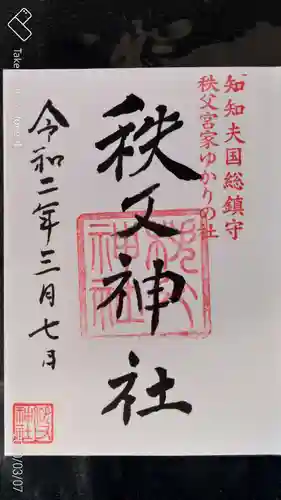 知知夫国総鎮守
秩父宮家ゆかりの社
秩父神社
令和二年三月七日
秩父神社
Take
0/03/07